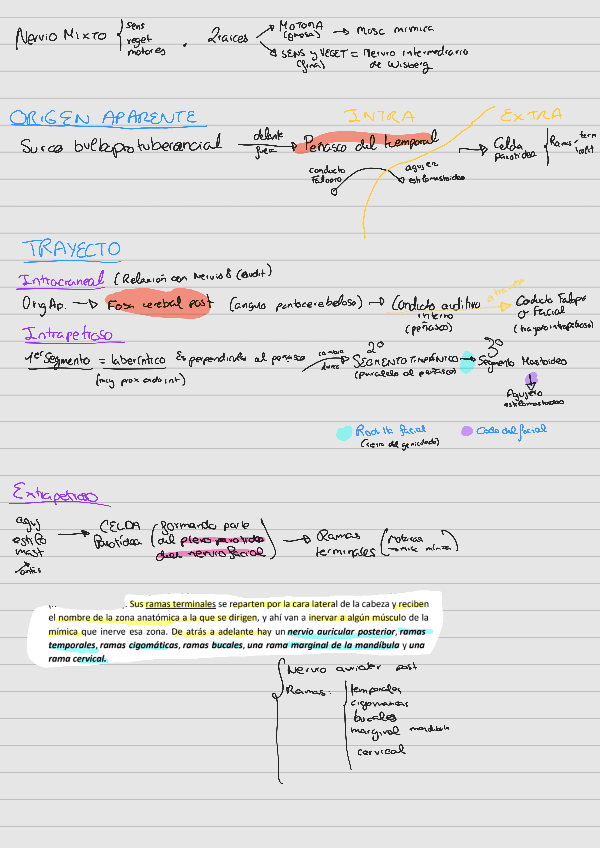 Nervio Mixto { sens
veget
motores
. 2 raices
→ MOTORA (gruesa) → musc mimica
→ SENS y VEGET = Nervio intermediario
(fina) de Wisberg
ORIGEN APARENTE
INTRA EXTRA
Surco bulboprotuberancial → delante → Peñasco del temporal → Celda parotidea { Ramas term
conducto Falopio
agujero estilomastoideo
TRAYECTO
Intracraneal (Relacion con Nervio 8 (Audit)
Orig Ap. → Fosa cerebral post (angulo pontocerebeloso) → Conducto auditivo interno (peñasco) → Conducto Falopio o Facial (trayecto intrapetroso)
Intrapetroso
1er Segmento = laberíntico Es perpendicular al peñasco
(muy prox endo int)
cambia
2º SEGMENTO TIMPÁNICO
(paralelo al peñasco)
3º Segmento Mastoideo
Agujero
estilomastoideo
Rodilla facial
Codo del facial
Extrapetroso
aguj
estilo
mast
→ CELDA Parotídea (formando parte
del plexo parotideo
del nervio facial)
→ Ramas
terminales (motoras
→ musc mimica)
Sus ramas terminales se reparten por la cara lateral de la cabeza y reciben
el nombre de la zona anatómica a la que se dirigen, y ahí van a inervar a algún músculo de la
mímica que inerve esa zona. De atrás a adelante hay un nervio auricular posterior, ramas
temporales, ramas cigomáticas, ramas bucales, una rama marginal de la mandíbula y una
rama cervical.
Nervio auricular post
Ramas:
temporales
cigomaticas
bucales
marginal mandibula
cervical